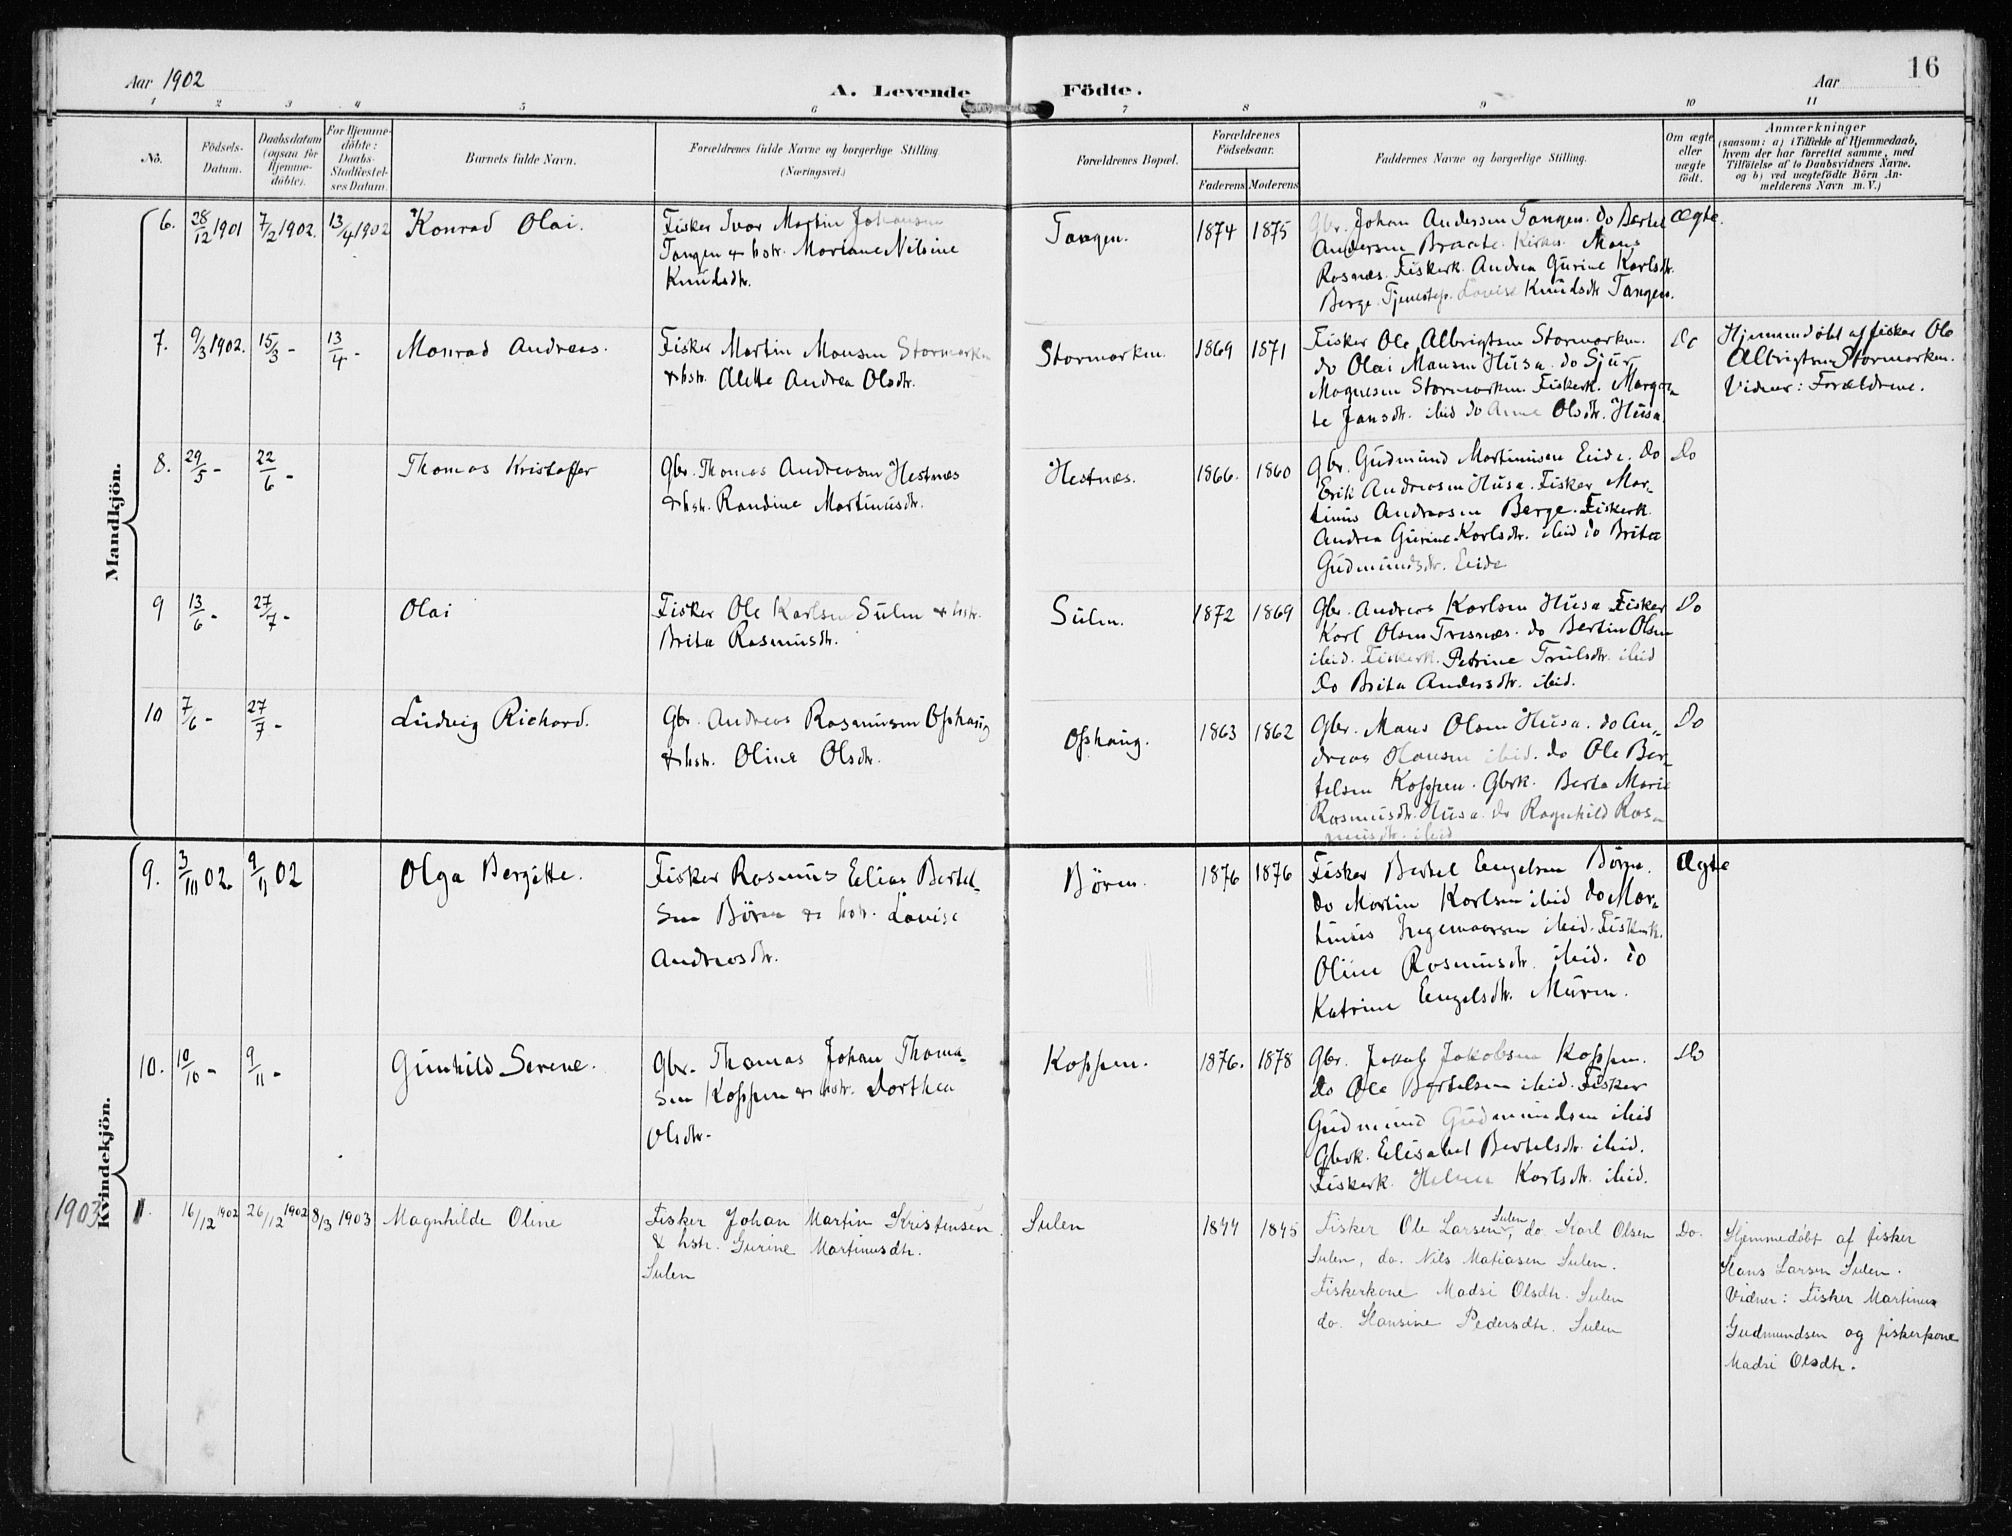 Aar 1902
A. Levende Födte.
Aar
16
1 2 3 4 5 6 7 8 9 10 11
No.
Födsels-
Datum.
Daabsdatum
(ogsaa for
Hjemme-
döbte).
For Hjemme-
döbte:
Daabs-
Stadfæstel-
ses Datum.
Barnets fulde Navn.
Forældrenes fulde Navne og borgerlige Stilling
(Næringsvei.)
Forældrenes Bopæl.
Forældrenes
Födselsaar.
Faderens Moderens
Faddernes Navne og borgerlige Stilling.
Om ægte
eller
uægte
födt.
Anmærkninger
(saasom: a) i Tilfælde af Hjemmedaab,
hvem der har forrettet samme, med
Tilföielse af to Daabsvidners Navne,
og b) ved uægtefödte Börn An-
melderens Navn m. V.)
Mandkjön.
6. 28/12 1901 7/2 1902. 13/4 1902 Konrad Olai.
Fisker Ivar Martin Johansen
Tangen & hstr. Mariane Nilsine
Knudsdtr.
Tangen. 1874 1875
Gbr. Johan Andersen Tangen. do Bertel
Andersen Braate. Kirkes. Mons
Rosnæs. Fiskerk. Andrea Gurine Karlsdtr.
Berge. Tjenestep. Lovise Knudsdtr Tangen.
Ægte.
7. 9/3 1902. 15/3 - 13/4 - Monrad Andreas.
Fisker Martin Monsen Stormarken
& hstr. Alette Andrea Olsdtr.
Stormarken. 1869 1871
Fisker Ole Albrigtsen Stormarken.
do Olai Mansen Husa. do Sjur
Magnesen Stormarken. Fiskerk. Margre-
te Jansdtr. ibid do Anne Olsdtr. Husa.
Do
Hjemmedøbt af fisker Ole
Albrigtsen Stormarken.
Vidner: Forældrene.
8. 29/5 - 22/6 - Thomas Kristoffer
Gbr. Thomas Andreasen Hestnæs
& hstr. Randine Martinusdtr.
Hestnæs. 1866. 1860
Gbr. Gudmund Martinusen Eide. Do
Erik Andreasen Husa. Fisker Mar-
tinus Andreasen Berge. Fiskerk.
Andrea Gurine Karlsdtr. ibid do Brita
Gudmundsdtr. Eide
Do
9 13/6 - 27/7 - Olai
Fisker Ole Karlsen Sulen & hstr.
Brita Rasmusdtr.
Sulen. 1872 1869
Gbr. Andreas Karlsen Husa Fisker
Karl Olsen Trænæs. do Bertin Olsen
ibid. Fiskerk. Petrine Trulsdtr. ibid
Do Brita Andersdtr. ibid.
Do
10 7/6 - 27/7 - Ludvig Richard.
Gbr. Andreas Rasmusen Ophaug
& hstr. Oline Olsdtr.
Ophaug. 1863 1862
Gbr. Mans Olsen Husa. do An-
dreas Olausen ibid. do Ole Ber-
telsen Koppen. Gbrk. Berta Marie
Rasmusdtr. Husa. do Ragnhild Ras-
musdtr. ibid
Do
Kvindekjön.
9. 3/10 02. 9/11 02 Olga Bergitte.
Fisker Rasmus Elias Bertel-
sen Børen & hstr. Lovise
Andreasdtr.
Børen. 1876 1876
Fisker Bertel Engelsen Børen.
Do Martin Karlsen ibid do Mar-
tinus Ingemarsen ibid. Fiskerk.
Oline Rasmusdtr. ibid. do
Katrine Engelsdtr. Muren.
Ægte
10. 10/10 - 9/11 - Gunhild Serene.
Gbr. Thomas Johan Thoma-
sen Koppen & hstr. Dorthea
Olsdtr.
Koppen. 1876. 1878
Gbr. Jakob Jakobsen Koppen.
Do Ole Bertelsen ibid. Fisker
Gudmund Gudmundsen ibid
Gbrk. Elisabet Bertelsdtr. ibid.
Fiskerk. Helene Karlsdtr. ibid.
Do
1903
11. 16/12 1902 26/12 1902 8/3 1903 Magnhilde Oline
Fisker Johan Martin Kristensen
& hstr. Gurine Martinusdtr.
Sulen
Sulen 1844 1845
Fisker Ole Larsen Sulen, do. Karl Olsen
Sulen, do. Nils Matiasen Sulen.
Fiskerkone Madsi Olsdtr. Sulen
do. Hansine Pedersdtr. Sulen
Do.
Hjemmedøbt af fisker
Hans Larsen Sulen.
Vidner: Fisker Martinus
Gudmundsen og fiskerkone
Madsi Olsdtr.